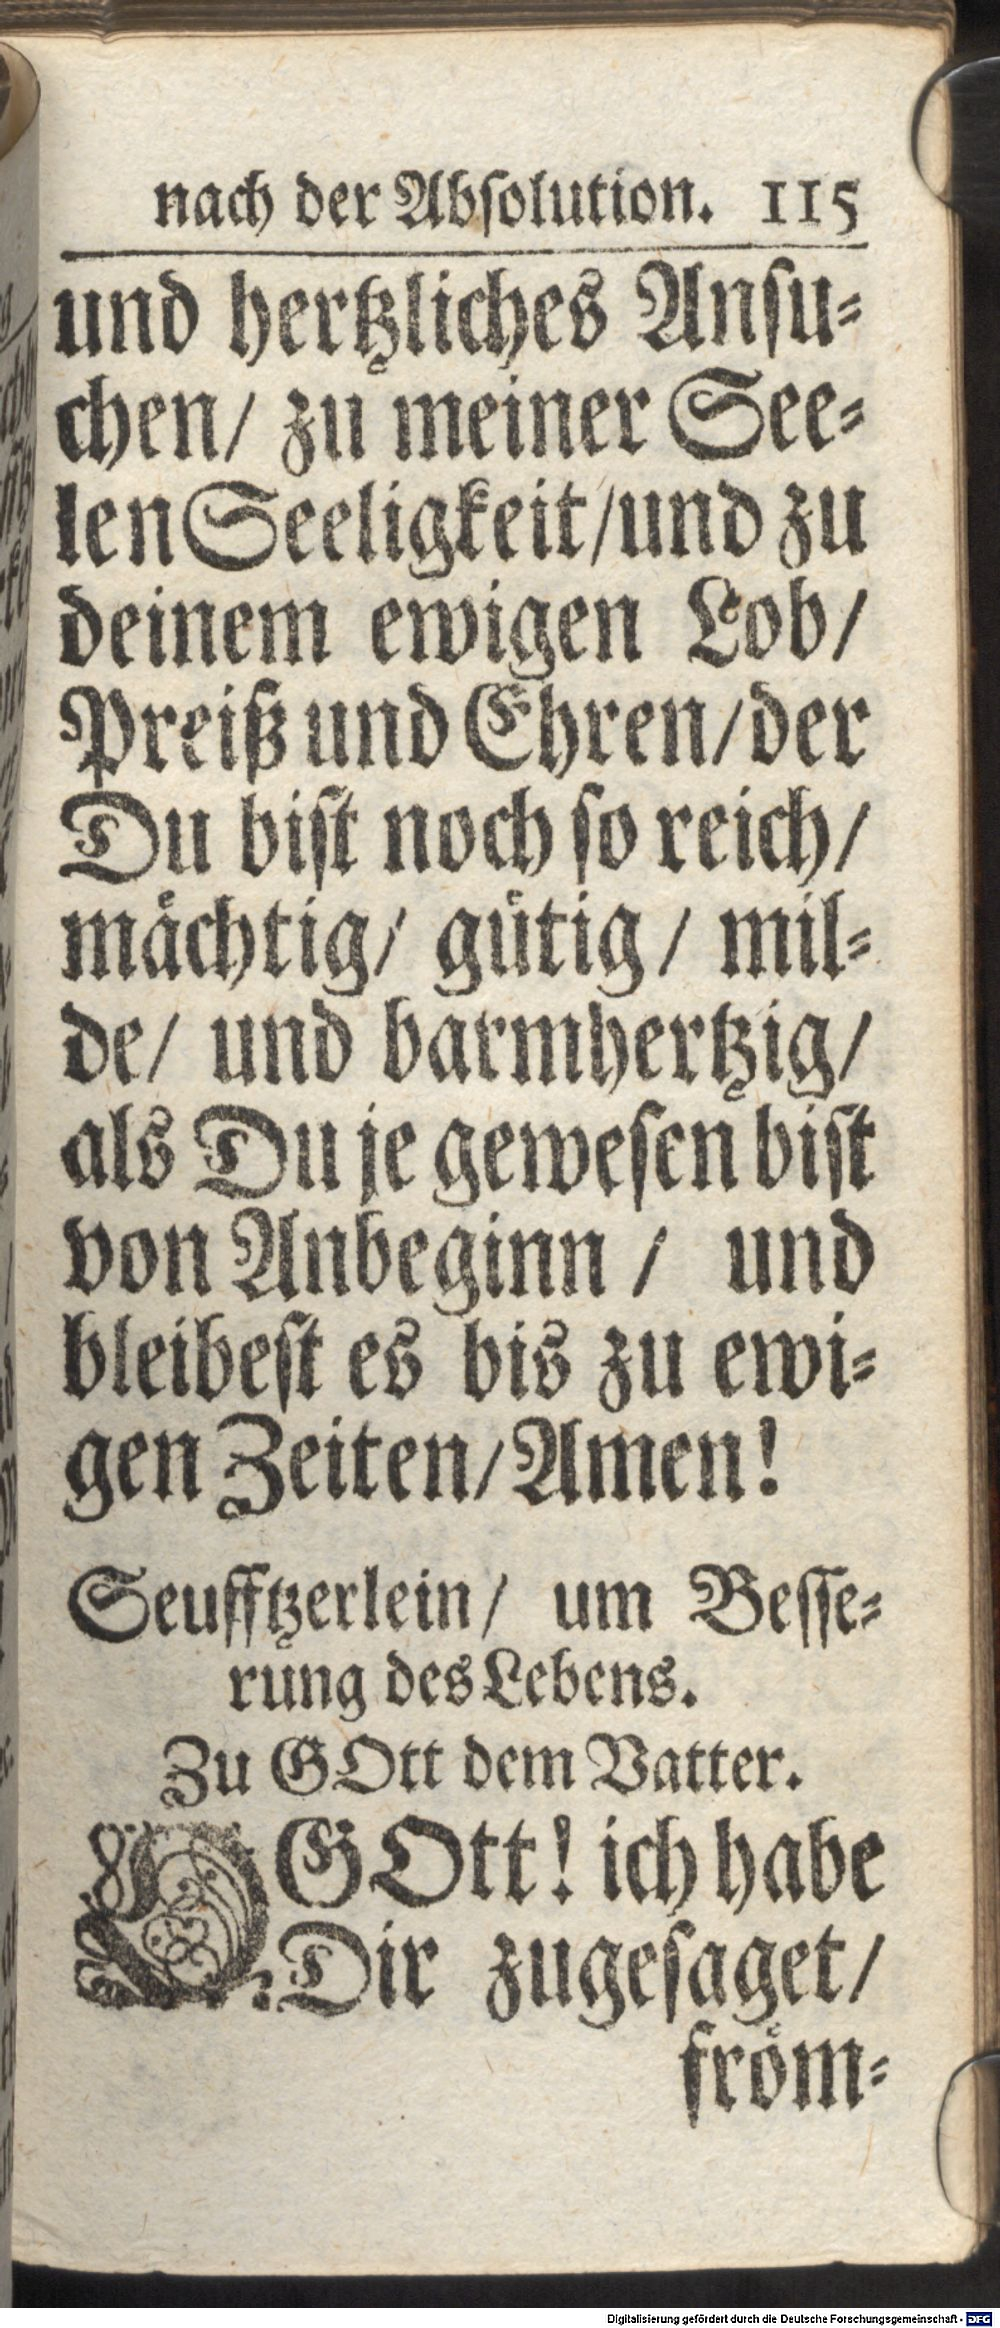 nach der Absolution. 115
und hertzliches Ansu-
chen/ zu meiner See-
len Seeligkeit/und zu
deinem ewigen Lob/
Preiß und Ehren/der
Du bist noch so reich/
mächtig/ gütig/ mil-
de/ und barmhertzig/
als Du je gewesen bist
von Anbeginn/ und
bleibest es bis zu ewi-
gen Zeiten/Amen!
Seufftzerlein/ um Besse-
rung des Lebens.
Zu GOtt dem Vatter.
O GOtt! ich habe
Dir zugesaget/
fröm-
Digitalisierung gefördert durch die Deutsche Forschungsgemeinschaft - DFG